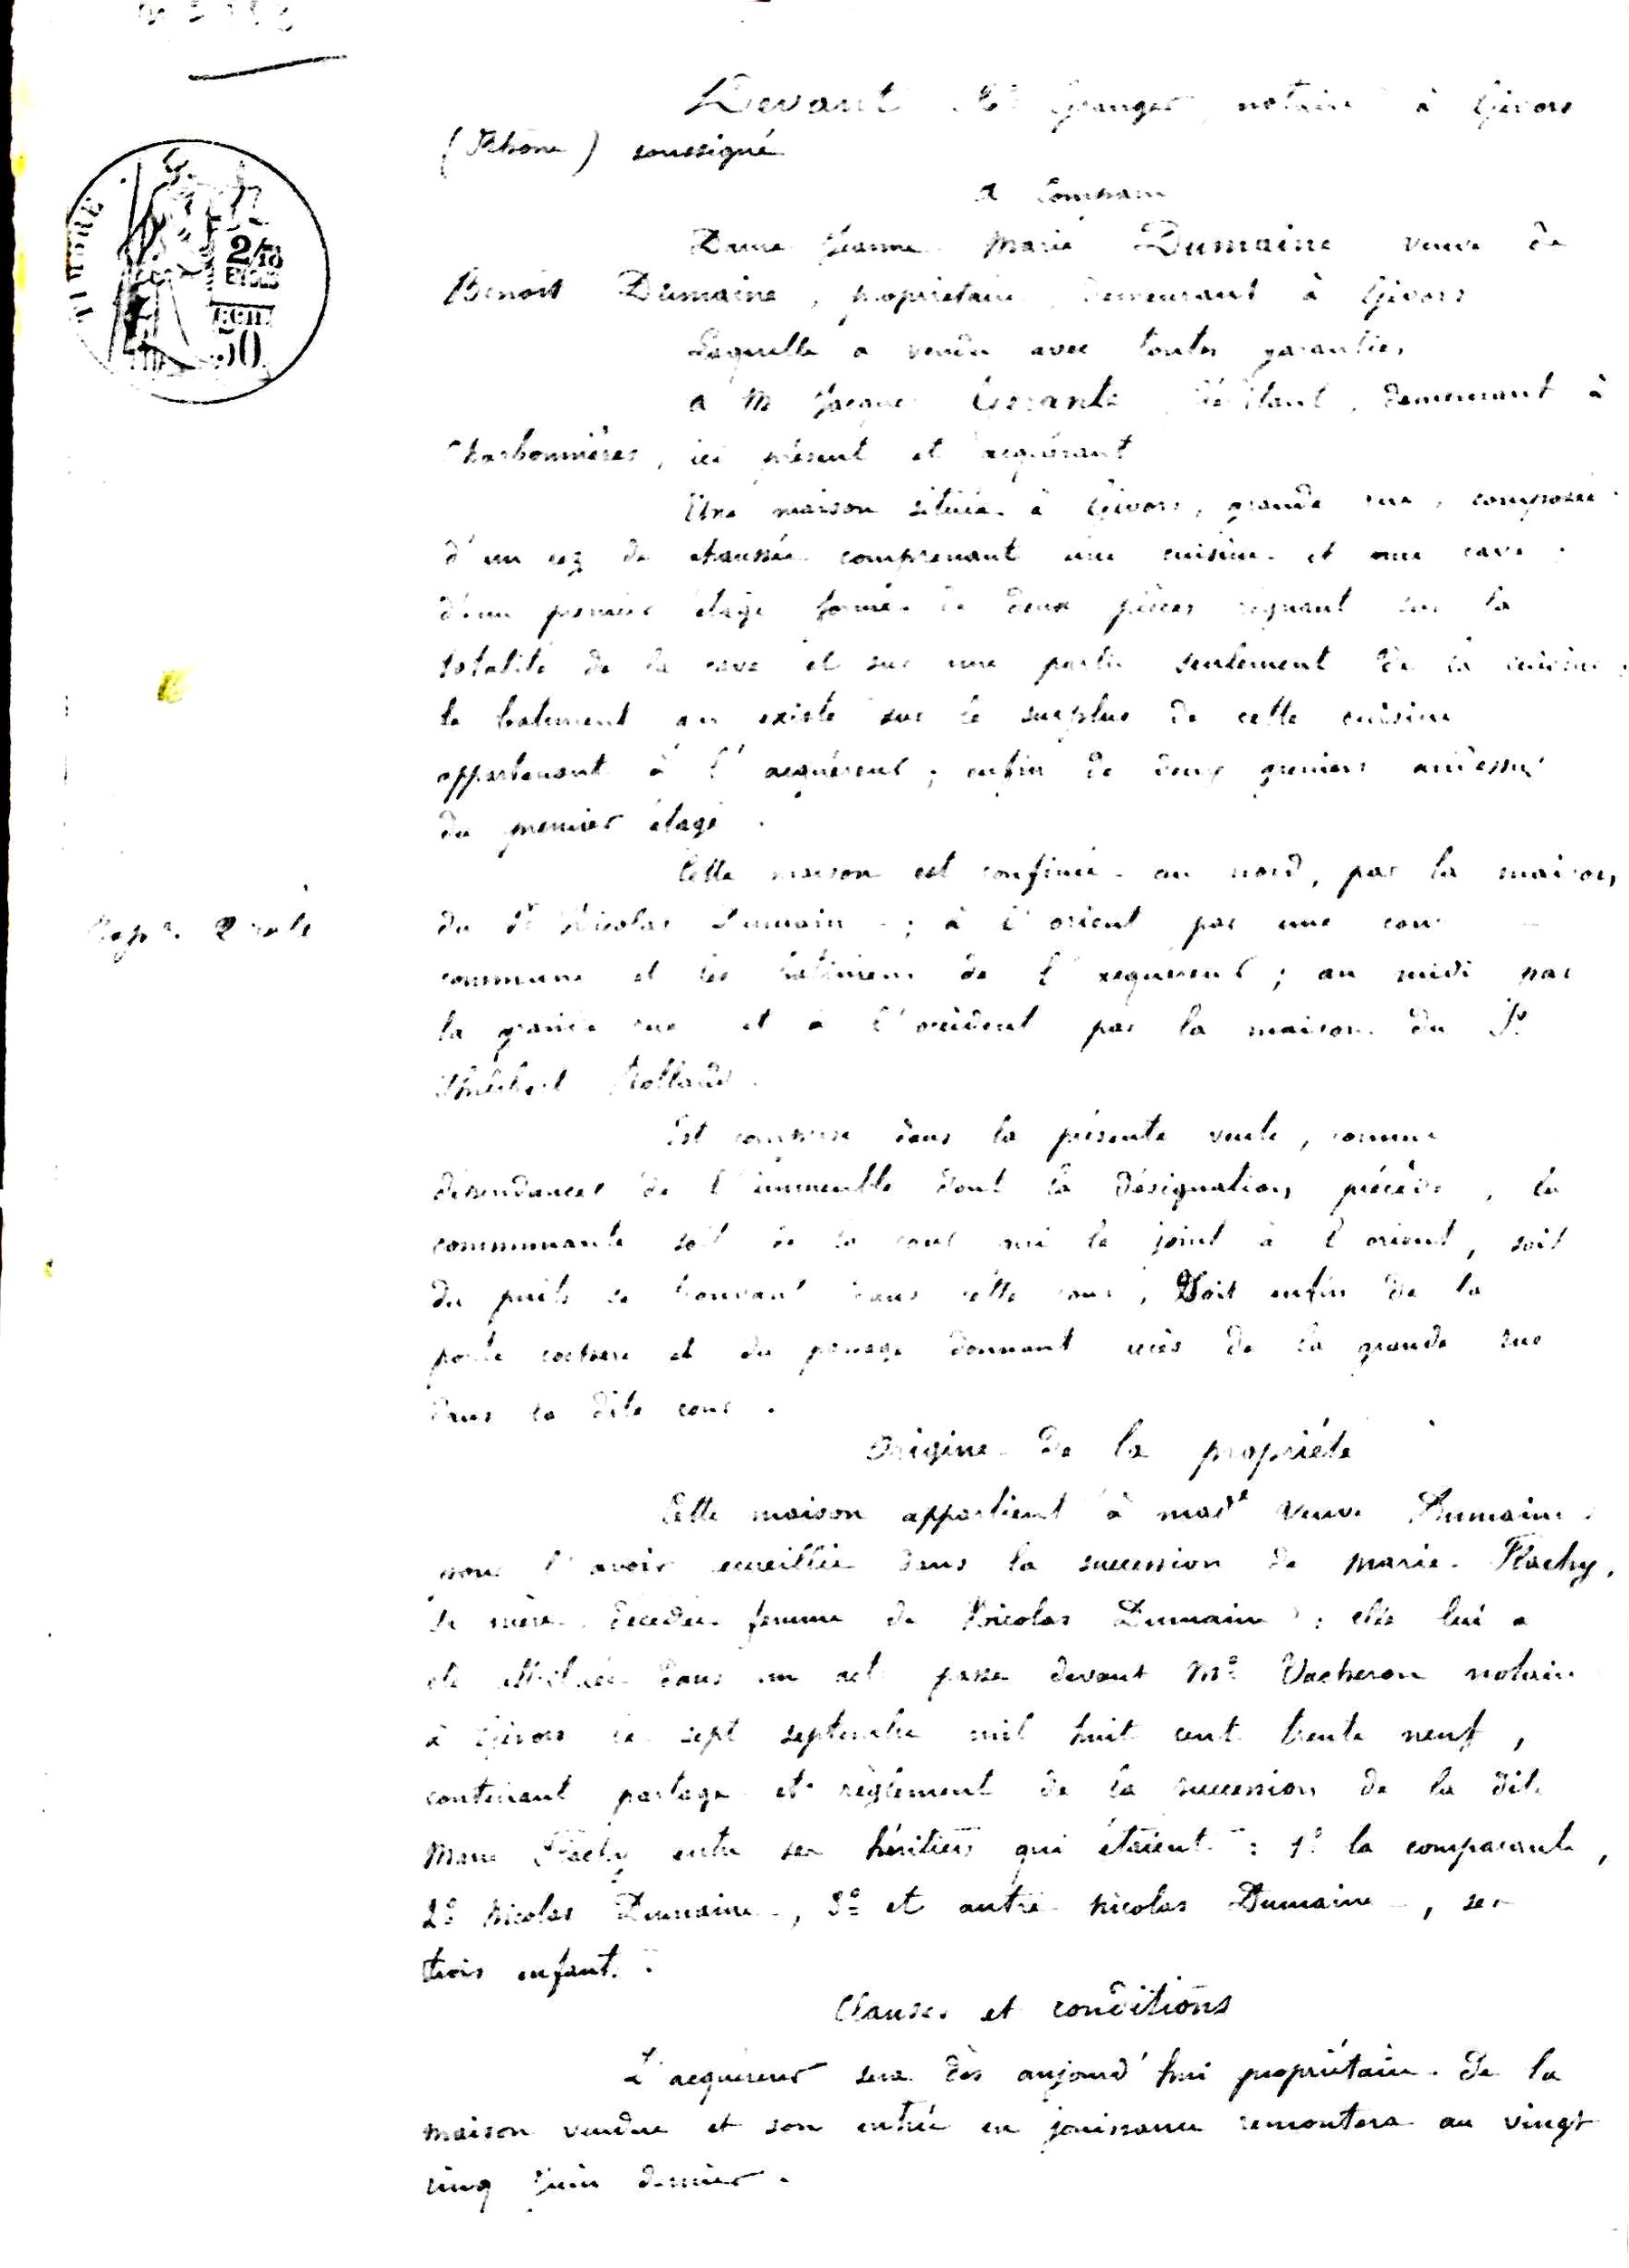 TIMBRE
2/10
EN SUS
50
Devant Me Granger notaire à Givors
(Rhône) soussigné
a Comparu
Dame Jeanne Marie Dumaine veuve de
Benoit Dumaine, propriétaire demeurant à Givors
Laquelle a vendu avec toutes garanties
a M Jacques demeurant à
Charbonnières, ici présent et acquérant
Une maison située à Givors, grande rue, composée
d'un rez de chaussée comprenant une cuisine et une cave
d'un premier étage formé de deux pièces régnant sur la
totalité de la cave et sur une partie seulement de la cuisine,
le batiment qui existe sur le surplus de cette cuisine
appartenant à l'acquéreur ; enfin de deux greniers audessus
du premier étage .
Cette maison est confinée au nord, par la maison
du Sr Nicolas Dumaine ; à l'orient par une cour
commune et les batiments de l'acquéreur ; au midi par
la grande rue et à l'occident par la maison du Sr
Philibert Rolland .
Est comprise dans la présente vente, comme
dépendances de l'immeuble dont la désignation précède, la
communauté soit de la cour qui le joint à l'orient, soit
du puits se trouvant dans cette cour, Soit enfin de la
porte cochère et du passage donnant accès de la grande rue
dans la dite cour .
Origine de la propriété
Cette maison appartient à made veuve Dumaine
pour l'avoir recueillie dans la succession de Marie Flachy,
sa mère décédée femme de Nicolas Dumaine ; elle lui a
été attribuée dans un acte passé devant Me Vacheron notaire
à Givors le sept septembre mil huit cent trente neuf,
contenant partage et règlement de la succession de la dite
Marie Flachy entre ses héritiers qui étaient : 1º la comparante,
2º Nicolas Dumaine, 3º et autre Nicolas Dumaine, ses
trois enfants.
Clauses et conditions
L'acquéreur sera dès aujourd'hui propriétaire de la
maison vendue et son entrée en jouissance remontera au vingt
cinq Juin dernier .